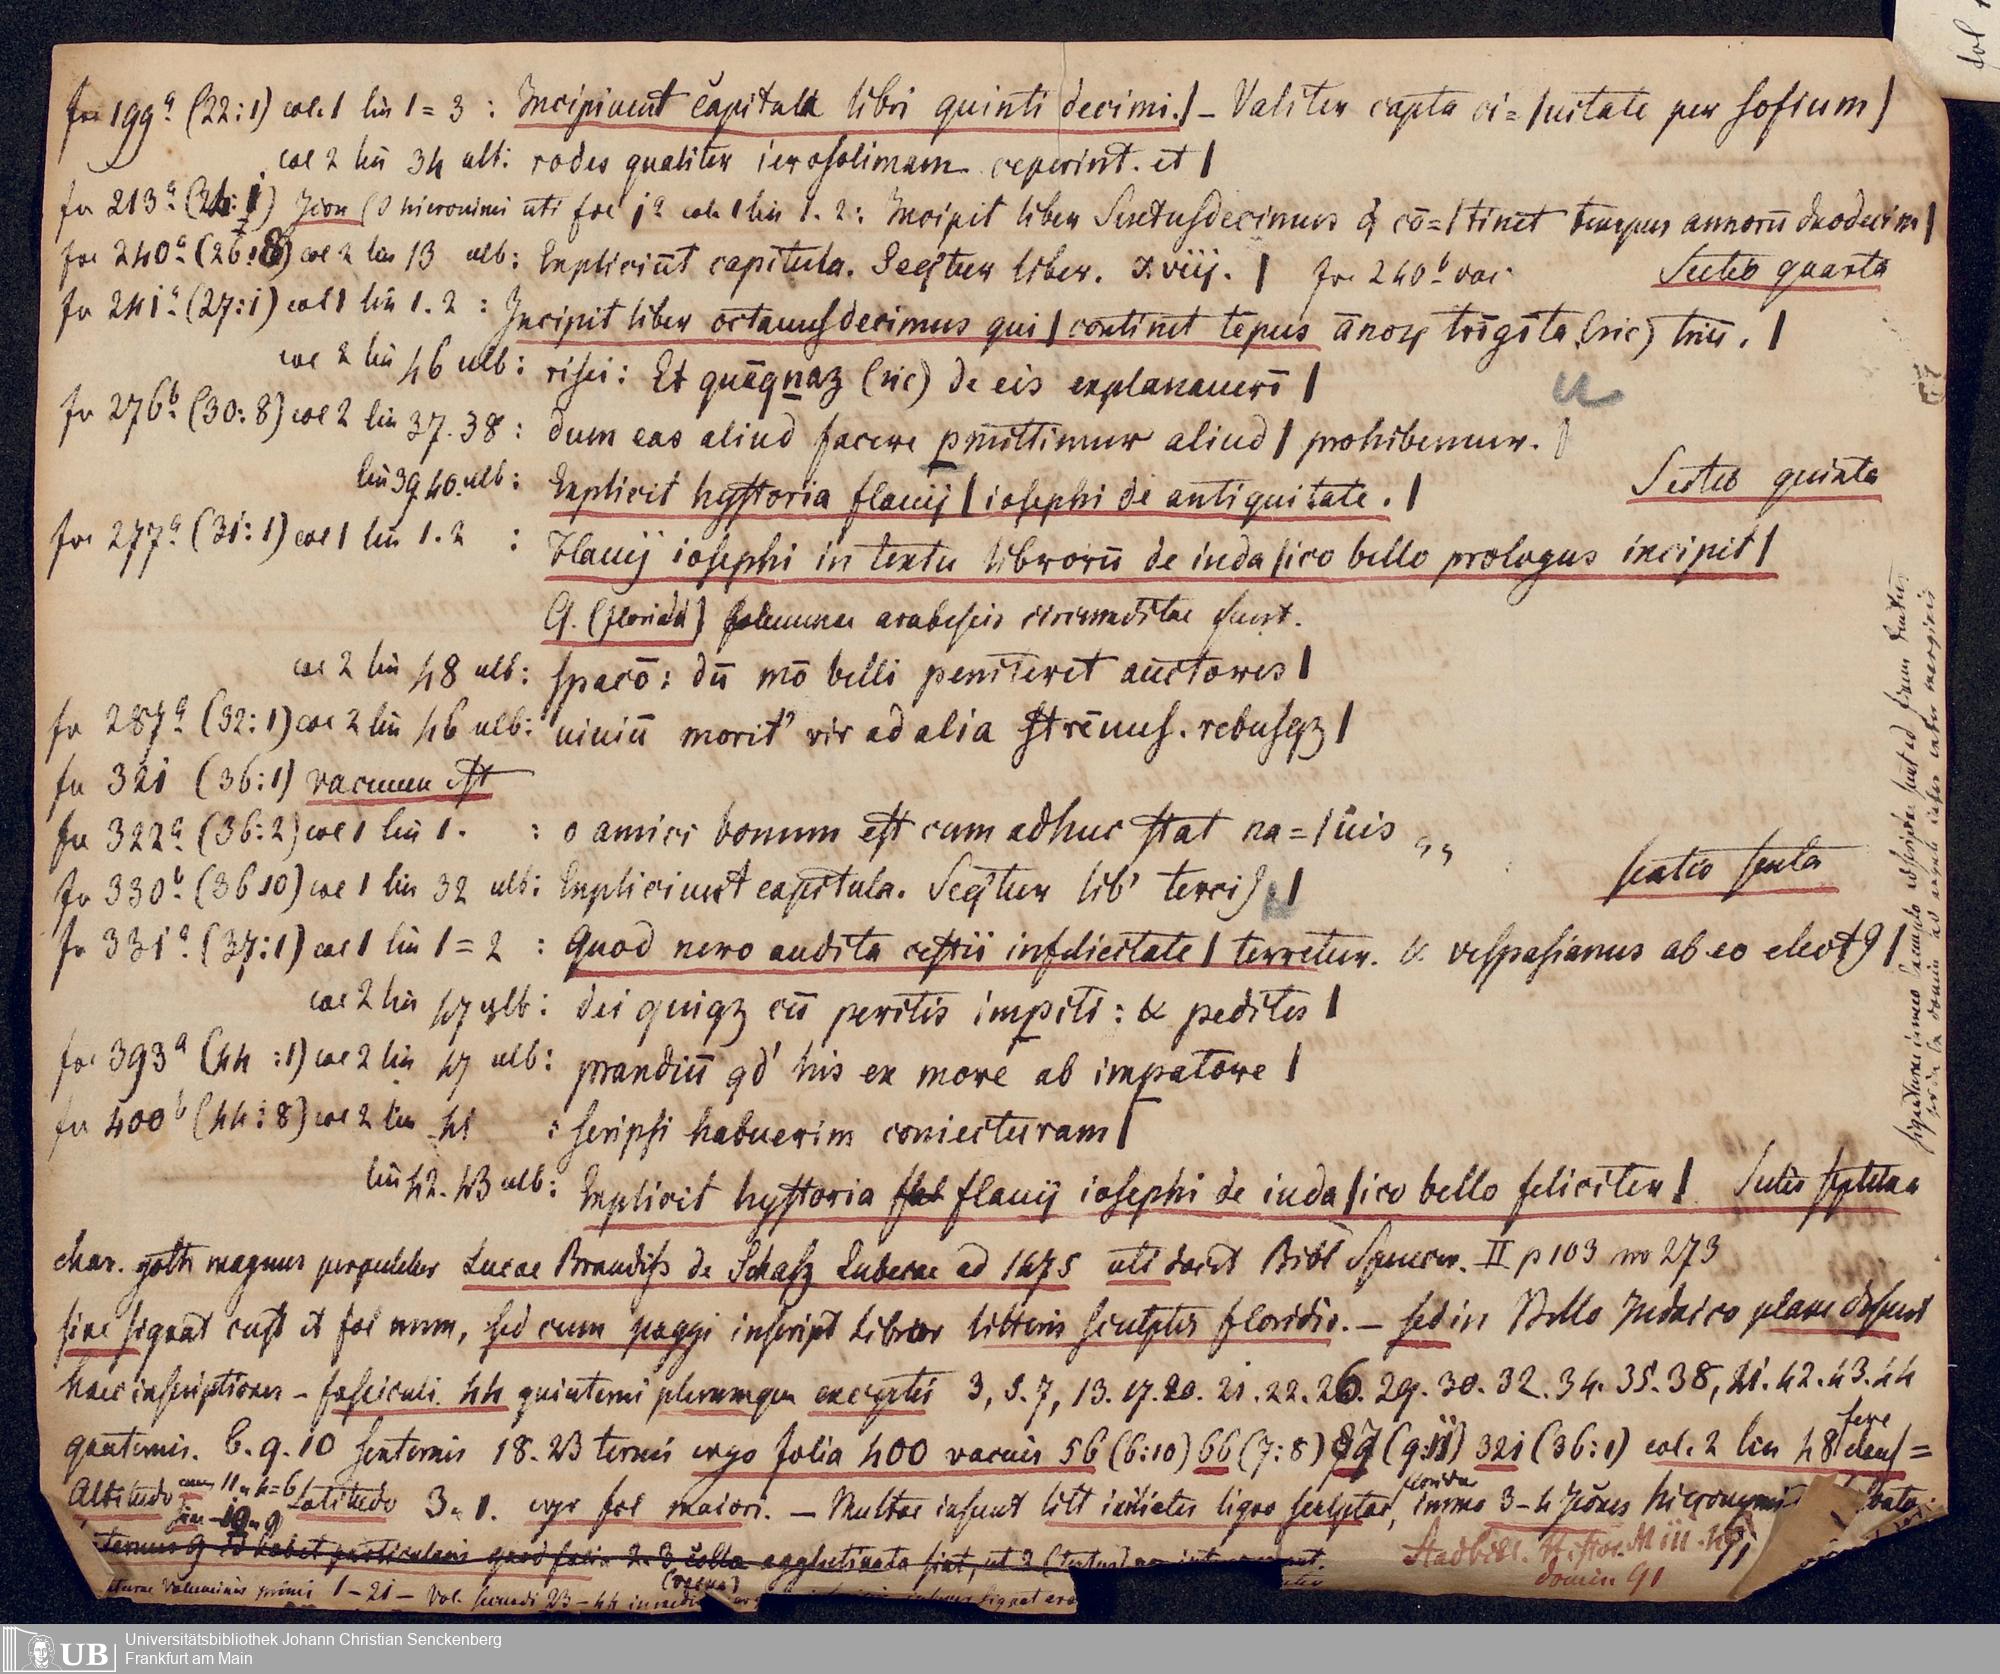 fol 199ª (22:1) col. 1 lin 1=3 : Incipiunt capitula libri quinti decimi. | – Valiter capta ci=|uitate per sosium |
col 2 lin 34 ult: rodes qualiter ierosolimam ceperint. et |
fol 213ª (24:1) Icon S hieronimi uti fol 1ª col 1 lin 1.2: Incipit liber Sextusdecimus q cō=|tinet tempus annorū duodecim |
fol 240ª (26:8) col 2 lin 13 ult: Expliciūt capitula. Seq'tur liber. xviij. | fol 240ᵇ vac
Sectio quarta
fol 241ª (27:1) col 1 lin 1.2 : Incipit liber octauusdecimus qui | continet tēpus ānoꝝ trīgīta (sic) triū. |
col 2 lin 46 ult: risei: Et quēqnaz (sic) de eis explanauerī |
fol 276ᵇ (30:8) col 2 lin 37.38 : dum eas aliud facere pmittimur aliud | prohibemur. |
lin 39.40. ult: Explicit hystoria flauij | iosephi de antiquitate. |
Sectio quinta
fol 277ª (31:1) col 1 lin 1.2 : Flauij iosephi in textu librorū de iuda|ico bello prologus incipit |
Q. (florida) columnae arabescis circumdatae sunt.
col 2 lin 48 ult: spacō: dū mō belli peniteret auctores |
fol 287ª (32:1) col 2 lin 46 ult: uiuiū morit' vir ad alia strēnus. rebusqꝫ |
fol 321 (36:1) vacuum est
fol 322ª (36:2) col 1 lin 1. : o amici bonum est cum adhuc stat na=|uis
fol 330ᵇ (36 10) col 1 lin 32 ult: Expliciunt capitula. Seq'tur lib' terci9 |
sectio sexta
fol 331ª (37:1) col 1 lin 1=2 : Quod nero audita cestii infelicitate | terretur. & vespasianus ab eo elect9 |
col 2 lin 47 ult: dei quiqꝫ cū peritis impiti: & pedites |
fol 393ª (44:1) col 2 lin 47 ult: prandiū qd' his ex more ab impatore |
fol 400ᵇ (44:8) col 2 lin 41 : scripsi habuerim coniecturam |
lin 42.43 ult: Explicit hystoria flauij iosephi de iuda|ico bello feliciter |. Sectio septima
char. goth magnus perpulcher Lucae Brandiss de Schasz Lubecae ad 1475 uti docet Bibl Spencer. II p 103 no 273
sine signat cust et fol num, sed cum paggi inscript libror litteris sculptis floridis. – sed in Bello Judaico plane desunt
haec inscriptiones – fasciculi. 44 quinterni plerumque exceptis 3, 5. 7, 13. 17. 20. 21. 22. 26. 29. 30. 32. 34. 35. 38, 41. 42. 43. 44
quaternis. 6. 9. 10 sexternis 18. 23 ternis ergo folia 400 vacuis 56 (6:10) 66 (7:8) 87 (9:11) 321 (36:1) col. 2 lin 48 fere
Altitudo cum 11 u 4=6, Latitudo 3 u 1. ergo fol maiori. – Multae insunt litt initiales ligno sculptae, floridae immo 3–4 Icones hieronymi
sine – 10 u 9
ternus 9 id habet particularis quod folia 2.3 agglutinata sint, ut 2
voluminis primi 1–21 – Vol. secundi 23–44
Stadbibl.
domin 91
Universitätsbibliothek Johann Christian Senckenberg
UB Frankfurt am Main